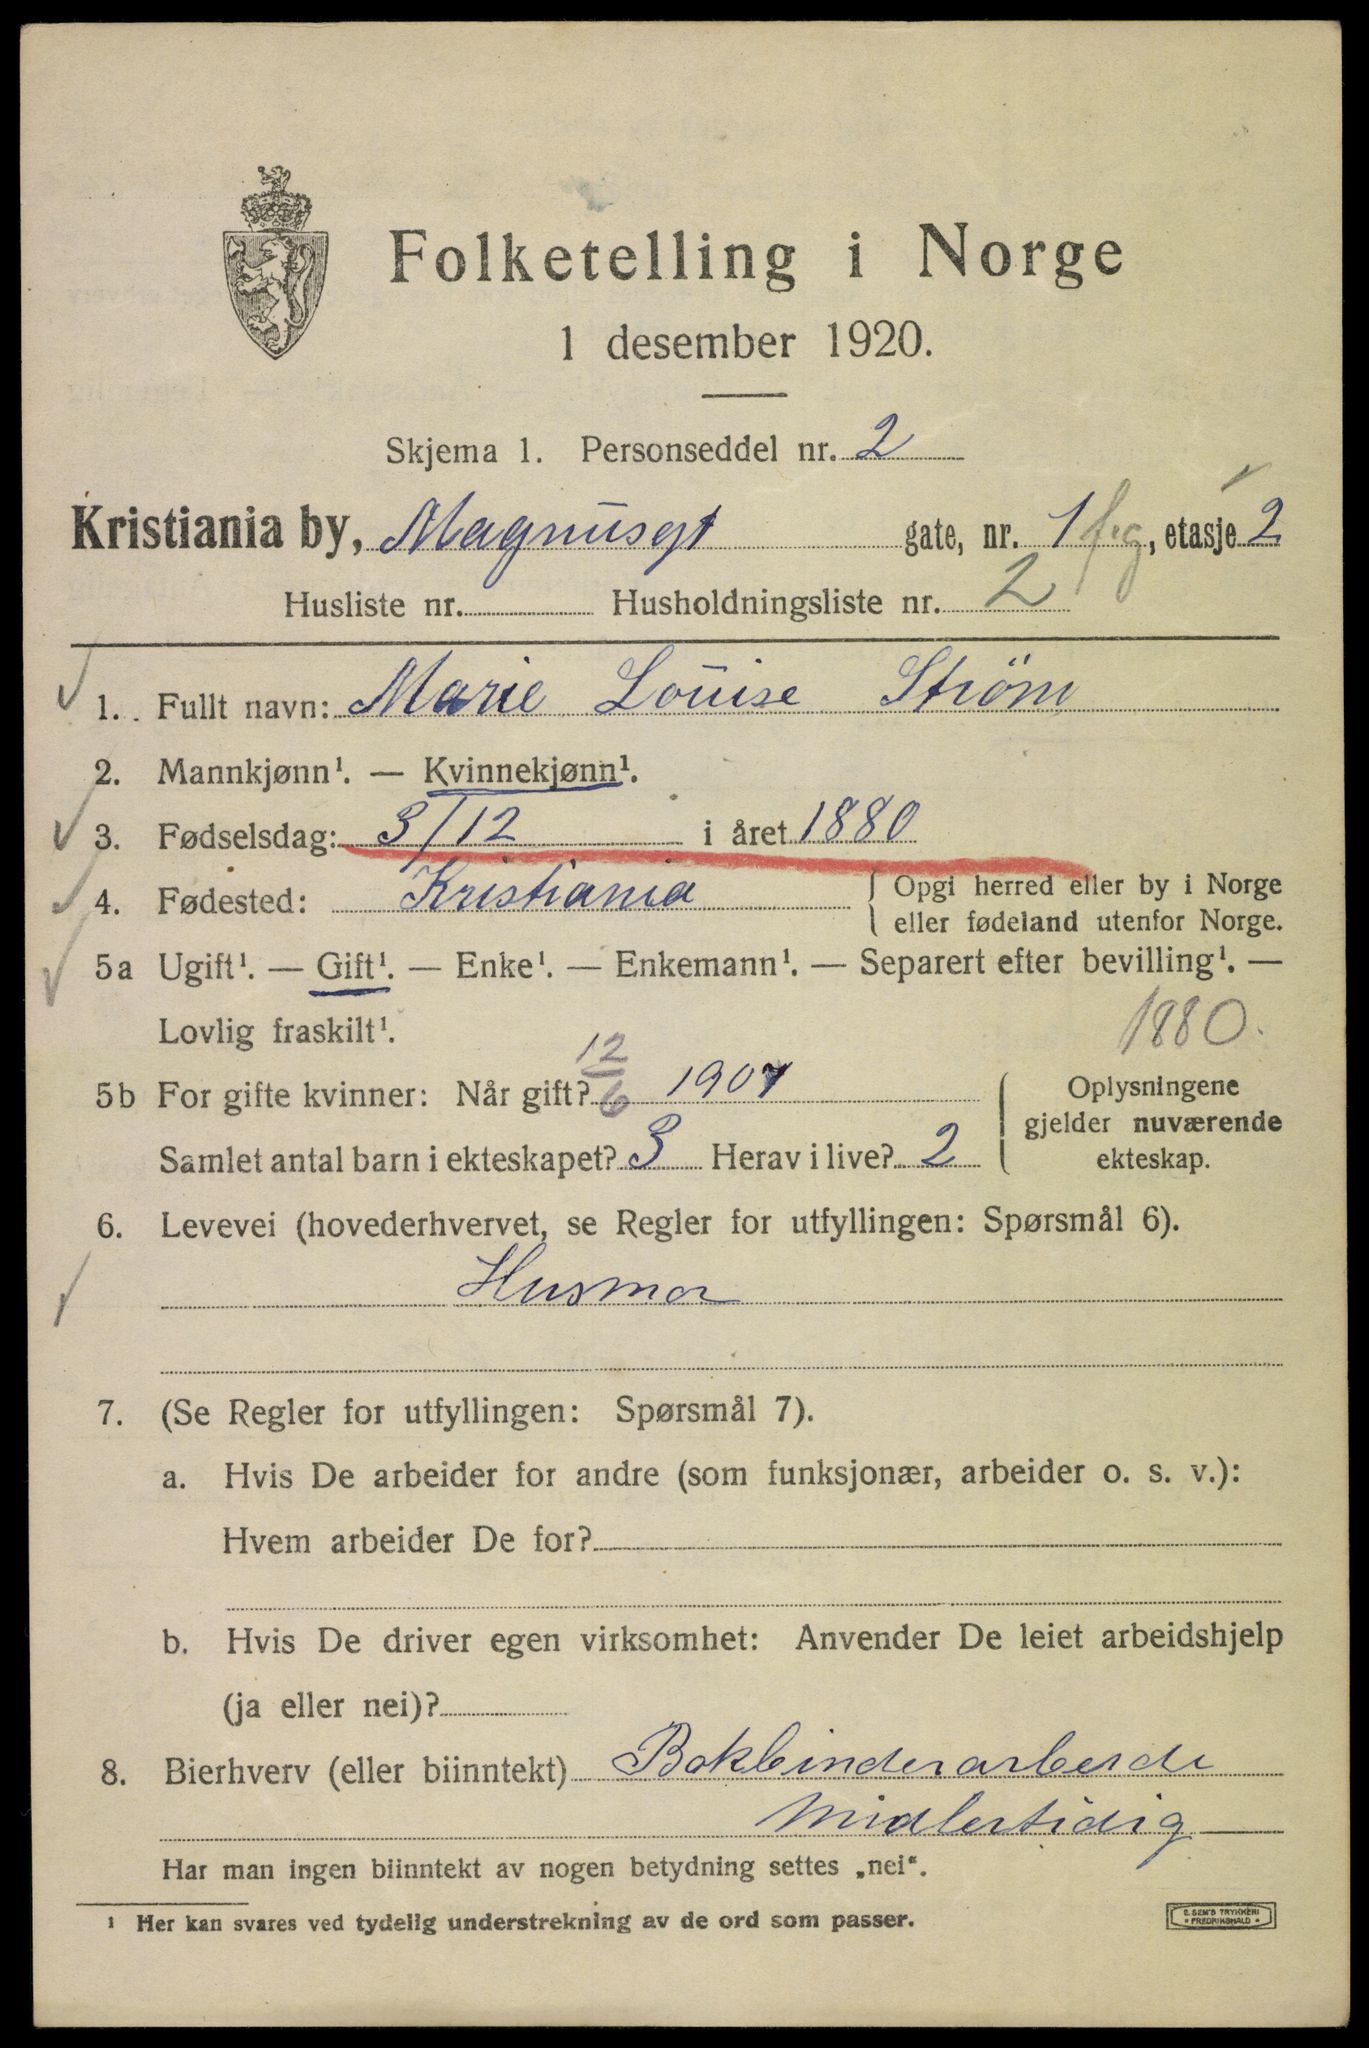 Folketelling i Norge
1 desember 1920.
Skjema 1. Personseddel nr. 2
Kristiania by, Magnusgt gate, nr. 1 f.g, etasje 2
Husliste nr. Husholdningsliste nr. 2
1. Fullt navn: Marie Louise Ström
2. Mannkjønn¹. — Kvinnekjønn¹.
3. Fødselsdag: 3/12 i året 1880
4. Fødested: Kristiania Opgi herred eller by i Norge
eller fødeland utenfor Norge.
5a Ugift¹. — Gift¹. — Enke¹. — Enkemann¹. — Separert efter bevilling¹. —
Lovlig fraskilt¹. 1880.
5b For gifte kvinner: Når gift? 12/6 1907 Oplysningene
gjelder nuværende
Samlet antal barn i ekteskapet? 3 Herav i live? 2 ekteskap.
6. Levevei (hovederhvervet, se Regler for utfyllingen: Spørsmål 6).
Husmor
7. (Se Regler for utfyllingen: Spørsmål 7).
a. Hvis De arbeider for andre (som funksjonær, arbeider o. s. v.):
Hvem arbeider De for?
b. Hvis De driver egen virksomhet: Anvender De leiet arbeidshjelp
(ja eller nei)?
8. Bierhverv (eller biinntekt) Bokbinderarbeide
Midlertidig
Har man ingen biinntekt av nogen betydning settes „nei“.
¹ Her kan svares ved tydelig understrekning av de ord som passer.
E. SEM'S TRYKKERI
FREDRIKSHALD